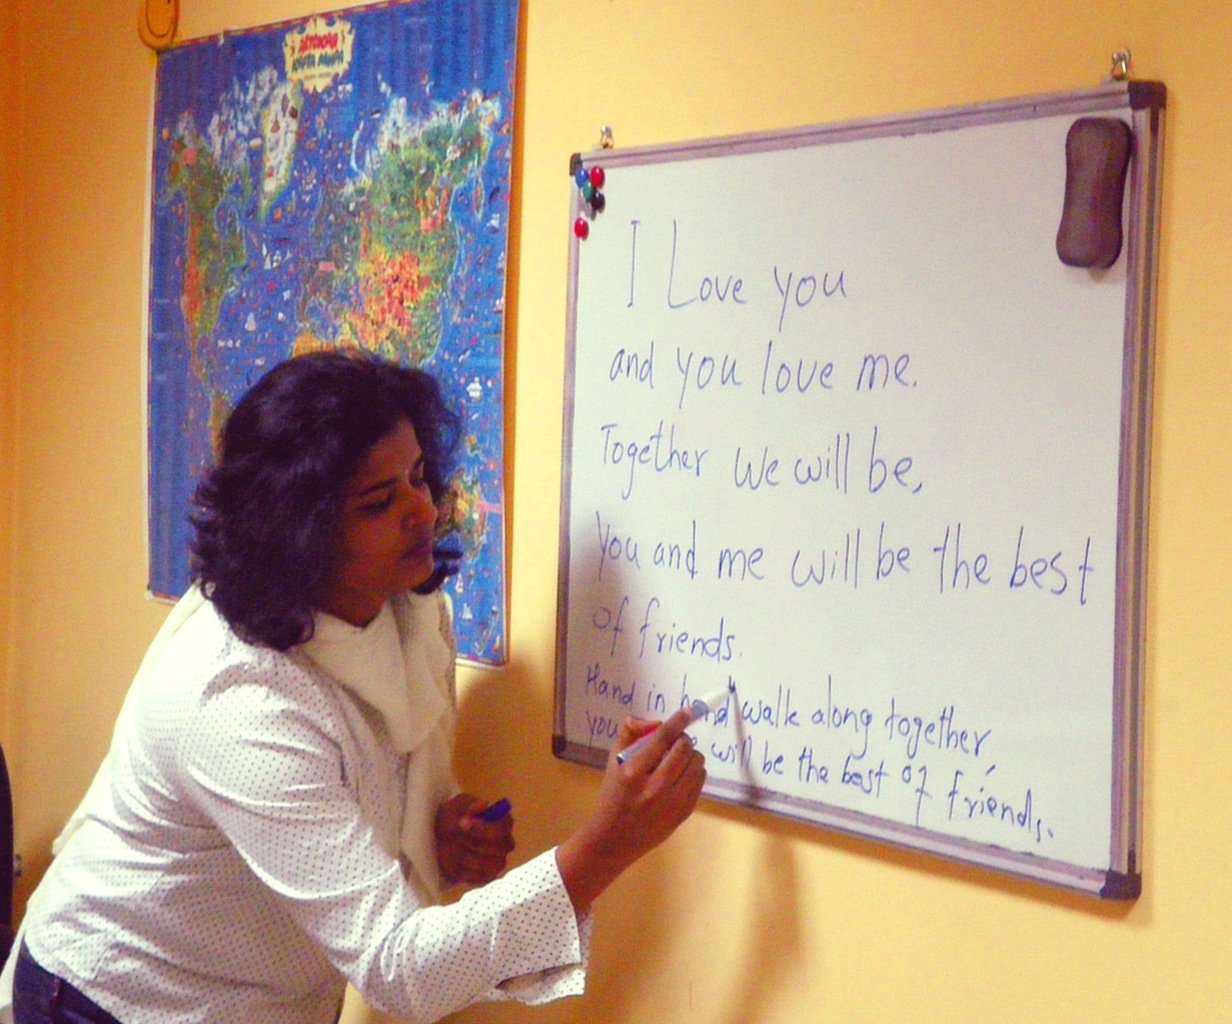 I Love you
and you love me.
Together we will be,
you and me will be the best
of friends.
Hand in hand walk along together,
you will be the best of friends.